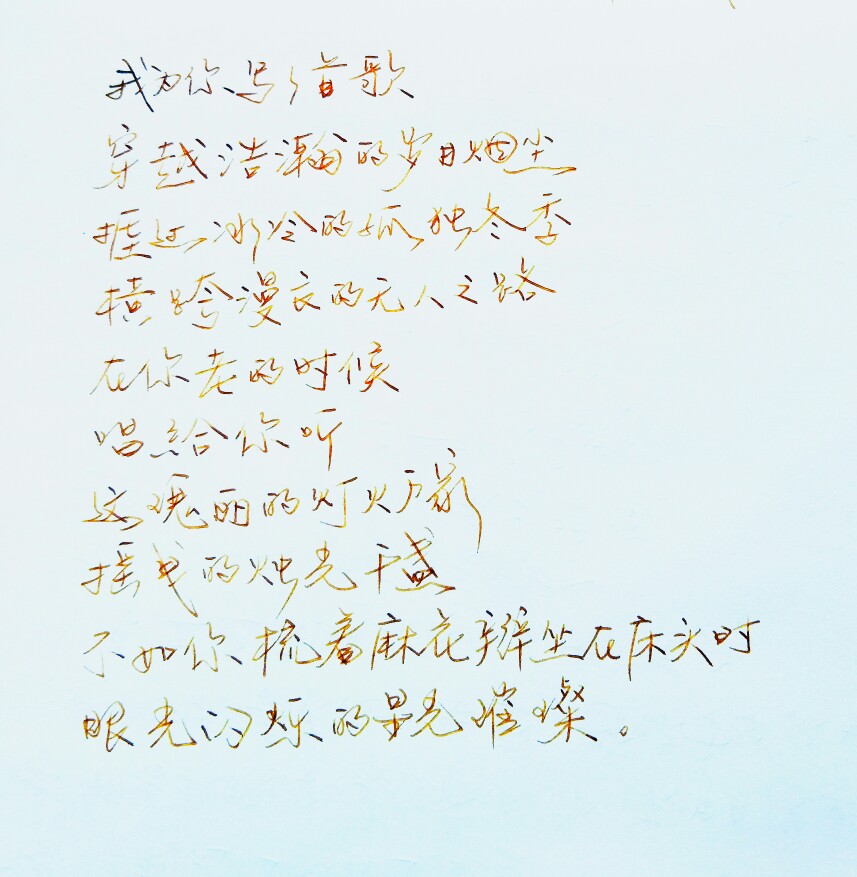 我为你写一首歌
穿越浩瀚的岁月烟尘
捱过冰冷的孤独冬季
横跨漫衣的无人之路
在你老的时候
唱给你听
这瑰丽的灯火万家
摇曳的烛光千盏
不如你梳着麻花辫坐在床头时
眼光闪烁的星光璀璨。